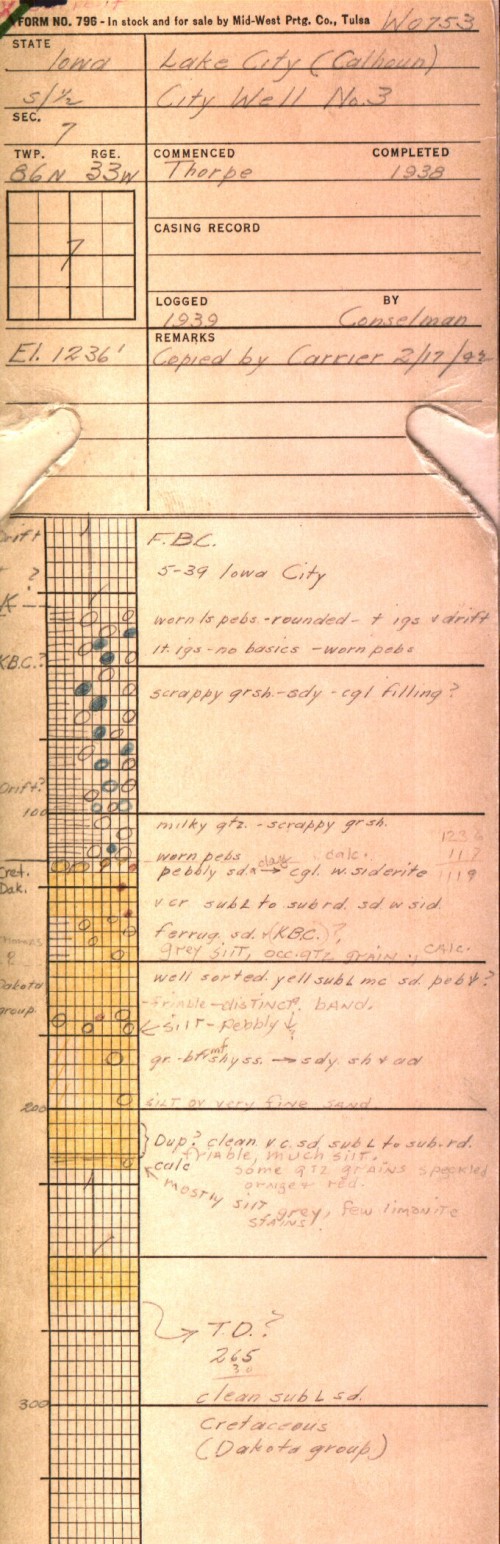 FORM NO. 796 - In stock and for sale by Mid-West Prtg. Co., Tulsa W0753
STATE
Iowa Lake City (Calhoun)
S/½ City Well No.3
SEC.
7
TWP. RGE. COMMENCED COMPLETED
86N 33W Thorpe 1938
7
CASING RECORD
LOGGED BY
1939 Conselman
REMARKS
El. 1236' Copied by Carrier 2/17/
Drift F.B.C.
? 5-39 Iowa City
K
worn ls pebs - rounded - + igs & drift
K.B.C.? lt. igs - no basics - worn pebs
scrappy grsh - sdy - cgl filling?
Drift?
100
milky qtz. - scrappy grsh.
1236
worn pebs calc. 117
Cret. pebbly sd. clay → cgl. w. siderite 119
Dak.
v cr subL to subrd. sd. w sid.
ferrug. sd. (KBC.)?
grey silt, occ. qtz grain, calc.
Dakota well sorted. yell subL mc sd. peb
- friable - distinct. band.
group ← silt - pebbly ↓
→ sdy sh
200 silt or very fine sand
Dup? clean v.c. sd. subL to sub.rd.
friable, much silt.
calc some qtz grains speckled
ornge & red.
mostly silt
grey, few limonite
stains
T.D.?
265
clean subL sd.
300
Cretaceous
(Dakota group)